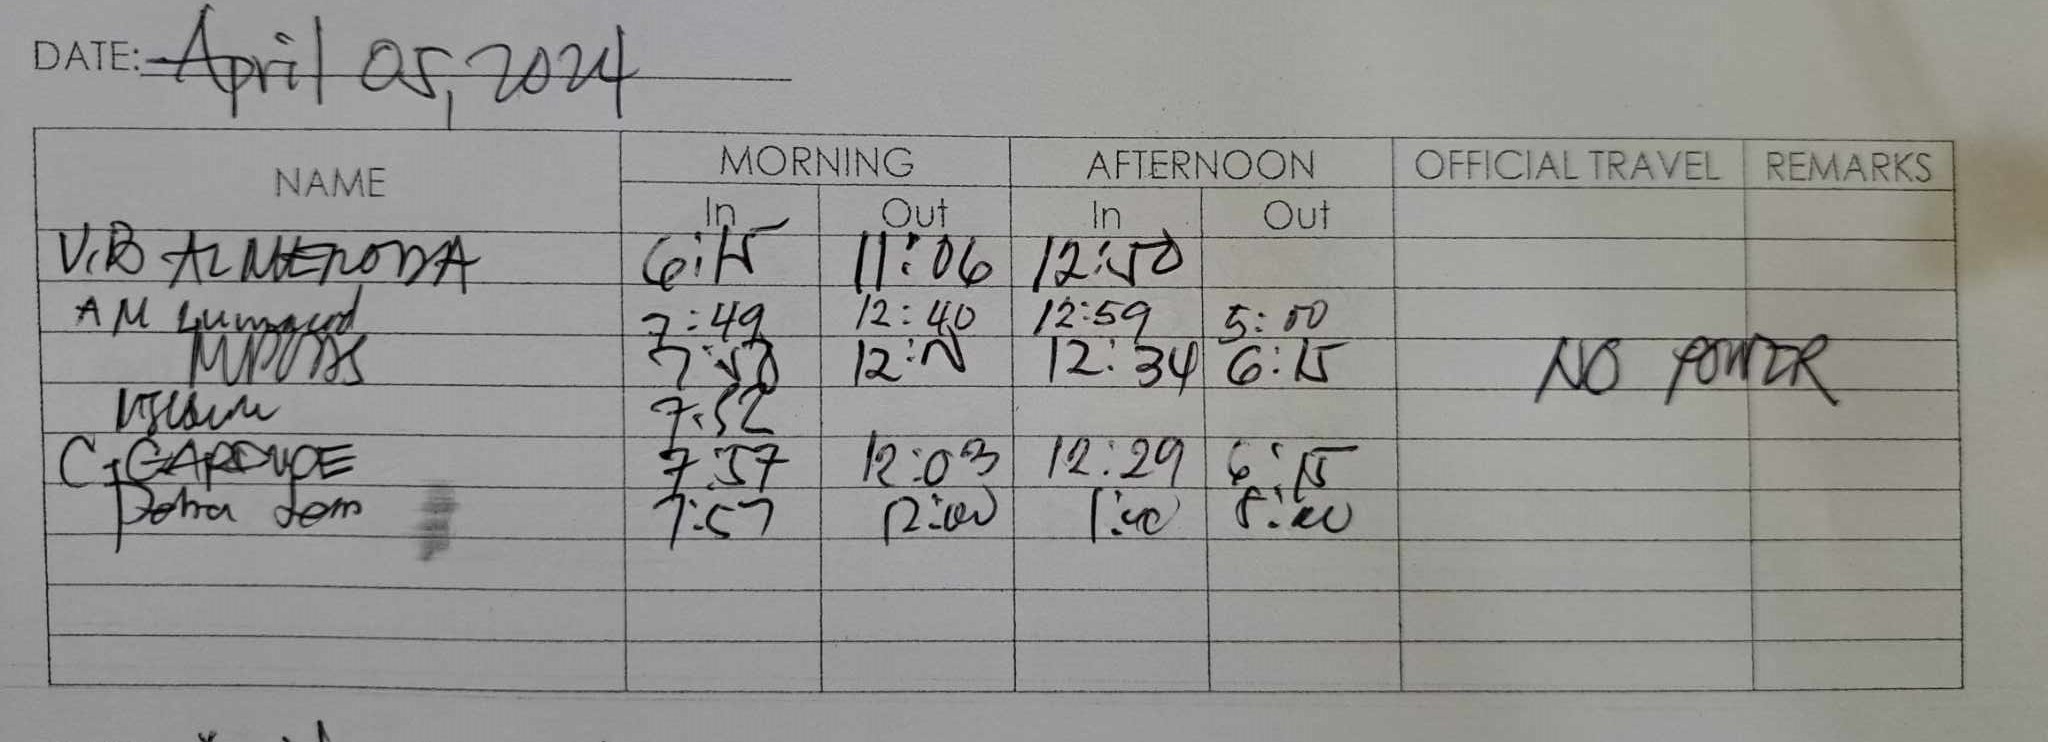 DATE: April 05, 2024
NAME MORNING AFTERNOON OFFICIAL TRAVEL REMARKS
In Out In Out
V.B ALMENODA 6:15 11:06 12:50
AM 7:49 12:40 12:59 5:00
7:50 12:N 12:34 6:15 NO POWER
7:52
C. GARDUCE 7:57 12:03 12:29 6:15
7:57 12:00 8:00